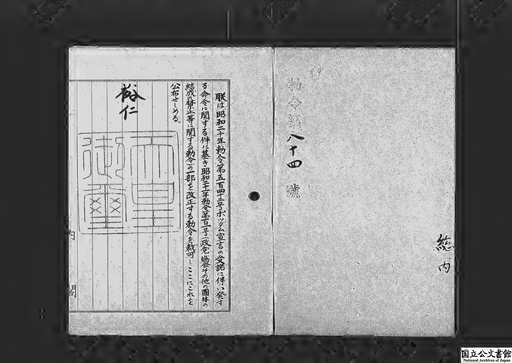 総、内
勅令第八十四號
朕は昭和二十年勅令第五百四十二号ポツダム宣言の受諾に伴い発す
る命令に関する件に基き、昭和二十一年勅令第百一号(政党、協会その他の団体の
結成の禁止等に関する勅令の一部を改正する勅令を裁可し、ここにこれを
公布せしめる。
裕仁
天皇
御璽
内
閣
国立公文書館
National Archives of Japan